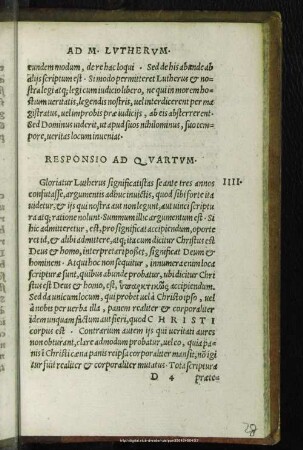 AD M. LVTHERVM.
eundem modum, de re hac loqui. Sed de his abunde ab
alijs scriptum est. Si modo permitteret Lutherus & no-
stra legi atq; legi cum iudicio libero, ne qui in morem ho-
stium ueritatis, legendis nostris, uel interdicerent per ma
gistratus, uel improbis præiudicijs, ab eis absterrerent.
Sed Dominus uiderit, ut apud suos nihilominus, suo tem-
pore, ueritas locum inueniat.
RESPONSIO AD QVARTVM.
Gloriatur Lutherus significatistas se ante tres annos IIII.
confutasse, argumentis adhuc inuictis, quod sibi forte ita
uidetur, & ijs qui nostra aut non legunt, aut uinci scriptu
ra atq; ratione nolunt. Summum illic argumentum est. Si
hic admitteretur, est, pro significat accipiendum, oporte
ret id, & alibi admittere, atq; ita cum dicitur Christus est
Deus & homo, interpretari posset, significat Deum &
hominem. Atqui hoc non sequitur, innumera enim loca
scripturæ sunt, quibus abunde probatur, ubi dicitur Chri
stus est Deus & homo, est, accipiendum.
Sed da unicum locum, qui probet uel à Christo ipso, uel
à nobis per uerba illa, panem realiter & corporaliter
idem unquam factum aut fieri, quod CHRISTI
corpus est. Contrarium autem ijs qui ueritati aures
non obturant, clare admodum probatur, uel eo, quia pa-
nis Christi cæna panis reipsa corporaliter mansit, nō igi
tur fuit realiter & corporaliter mutatus. Tota scriptura
D 4 præte-
28